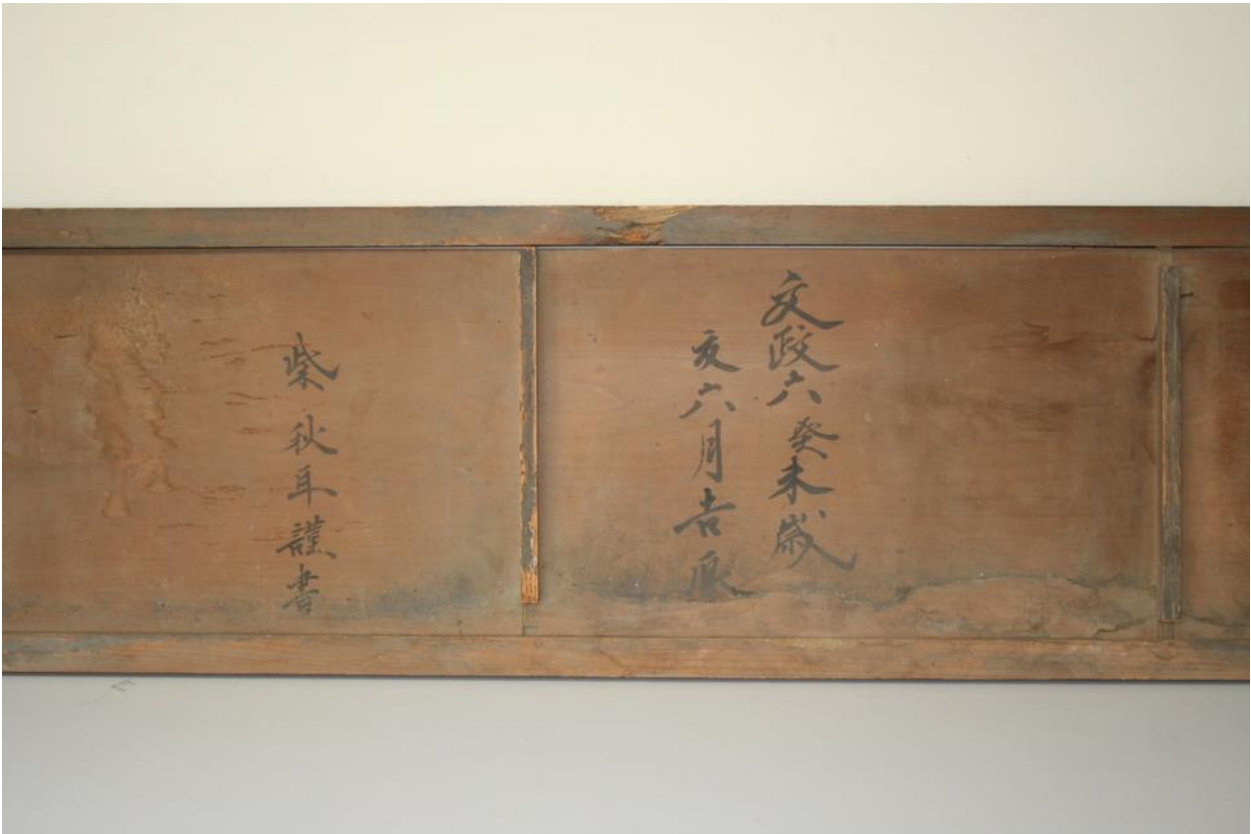 文政六癸未歳
夏六月吉辰
柴秋邨謹書